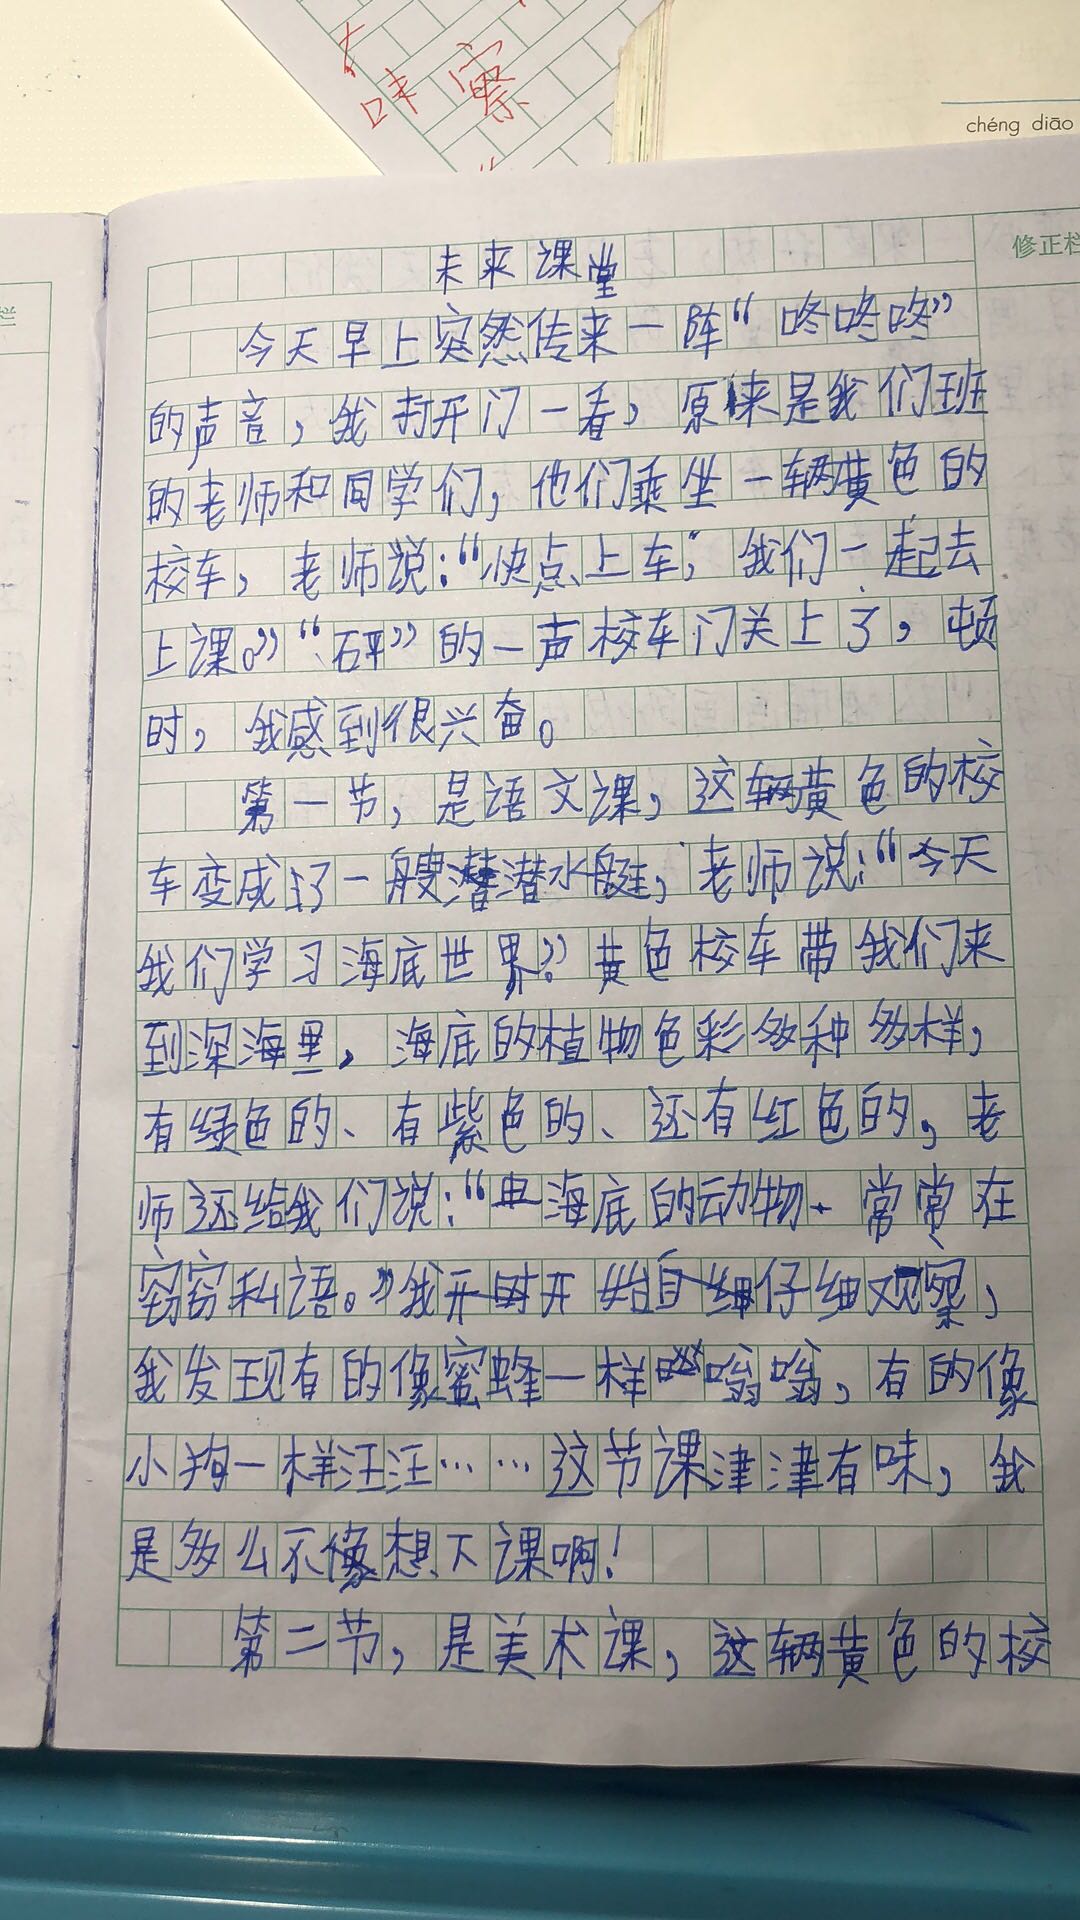 味 察
chéng diāo
修正栏
未来课堂
今天早上突然传来一阵“咚咚咚”
的声音，我打开门一看，原来是我们班
的老师和同学们，他们乘坐一辆黄色的
校车，老师说：“快点上车，我们一起去
上课。”“砰”的一声校车门关上了，顿
时，我感到很兴奋。
第一节，是语文课，这辆黄色的校
车变成了一艘潜水艇，老师说：“今天
我们学习海底世界？”黄色校车带我们来
到深海里，海底的植物色彩多种多样，
有绿色的、有紫色的、还有红色的，老
师还给我们说：“海底的动物常常在
窃窃私语。”我开始仔细观察，
我发现有的像蜜蜂一样嗡嗡，有的像
小狗一样汪汪……这节课津津有味，我
是多么不想下课啊！
第二节，是美术课，这辆黄色的校